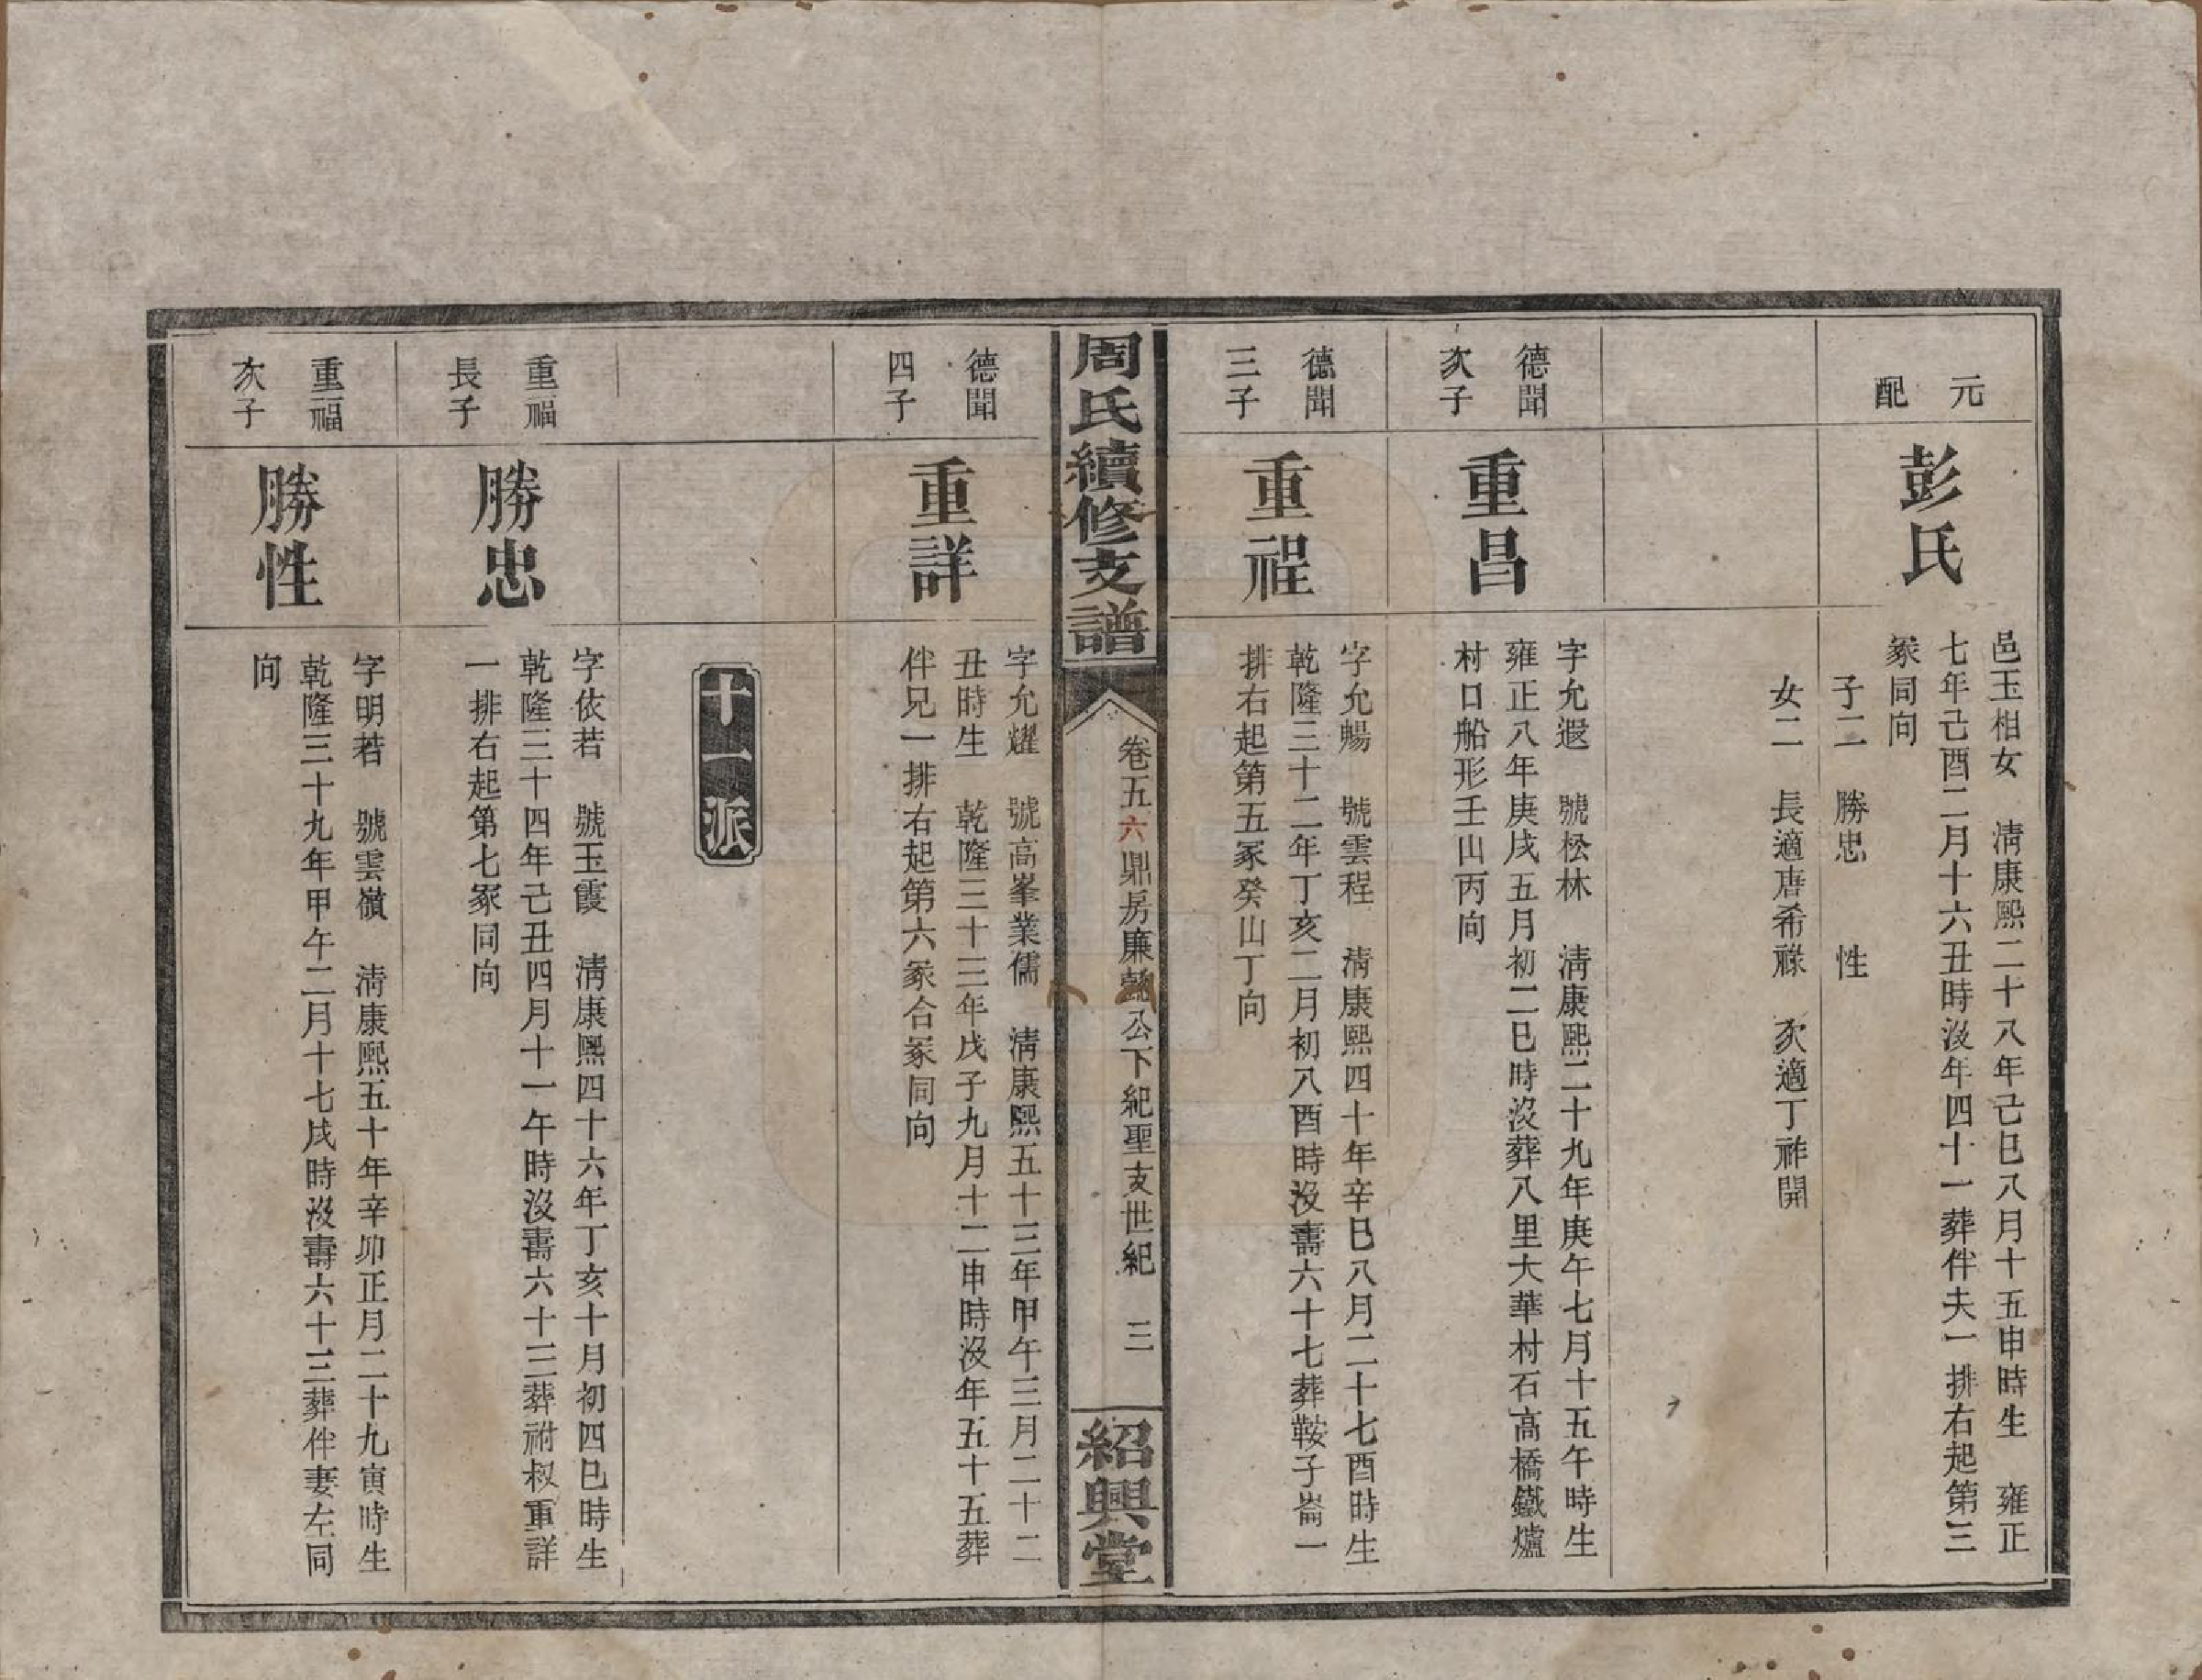 元
配
彭氏
邑玉相女　清康熙二十八年己巳八月十五申時生　雍正
七年己酉二月十六丑時沒年四十一葬伴夫一排右起第三
冢同向
子二　勝忠　性
女二　長適唐希祿　次適丁祚開
德聞
次子
重昌
字允遐　號松林　清康熙二十九年庚午七月十五午時生
雍正八年庚戌五月初二巳時沒葬八里大華村石高橋鐵爐
村口船形壬山丙向
德聞
三子
重程
字允暢　號雲程　清康熙四十年辛巳八月二十七酉時生
乾隆三十二年丁亥二月初八酉時沒壽六十七葬鞍子崙一
排右起第五冢癸山丁向
周氏續修支譜
卷五六鼎房廉懿公下紀聖支世紀　三
紹興堂
德聞
四子
重詳
字允耀　號高峯業儒　清康熙五十三年甲午三月二十二
丑時生　乾隆三十三年戊子九月十二申時沒年五十五葬
伴兄一排右起第六冢合冢同向
十一派
重福
長子
勝忠
字依若　號玉霞　清康熙四十六年丁亥十月初四巳時生
乾隆三十四年己丑四月十一午時沒壽六十三葬祔叔重詳
一排右起第七冢同向
重福
次子
勝性
字明若　號雲嶺　清康熙五十年辛卯正月二十九寅時生
乾隆三十九年甲午二月十七戌時沒壽六十三葬伴妻左同
向